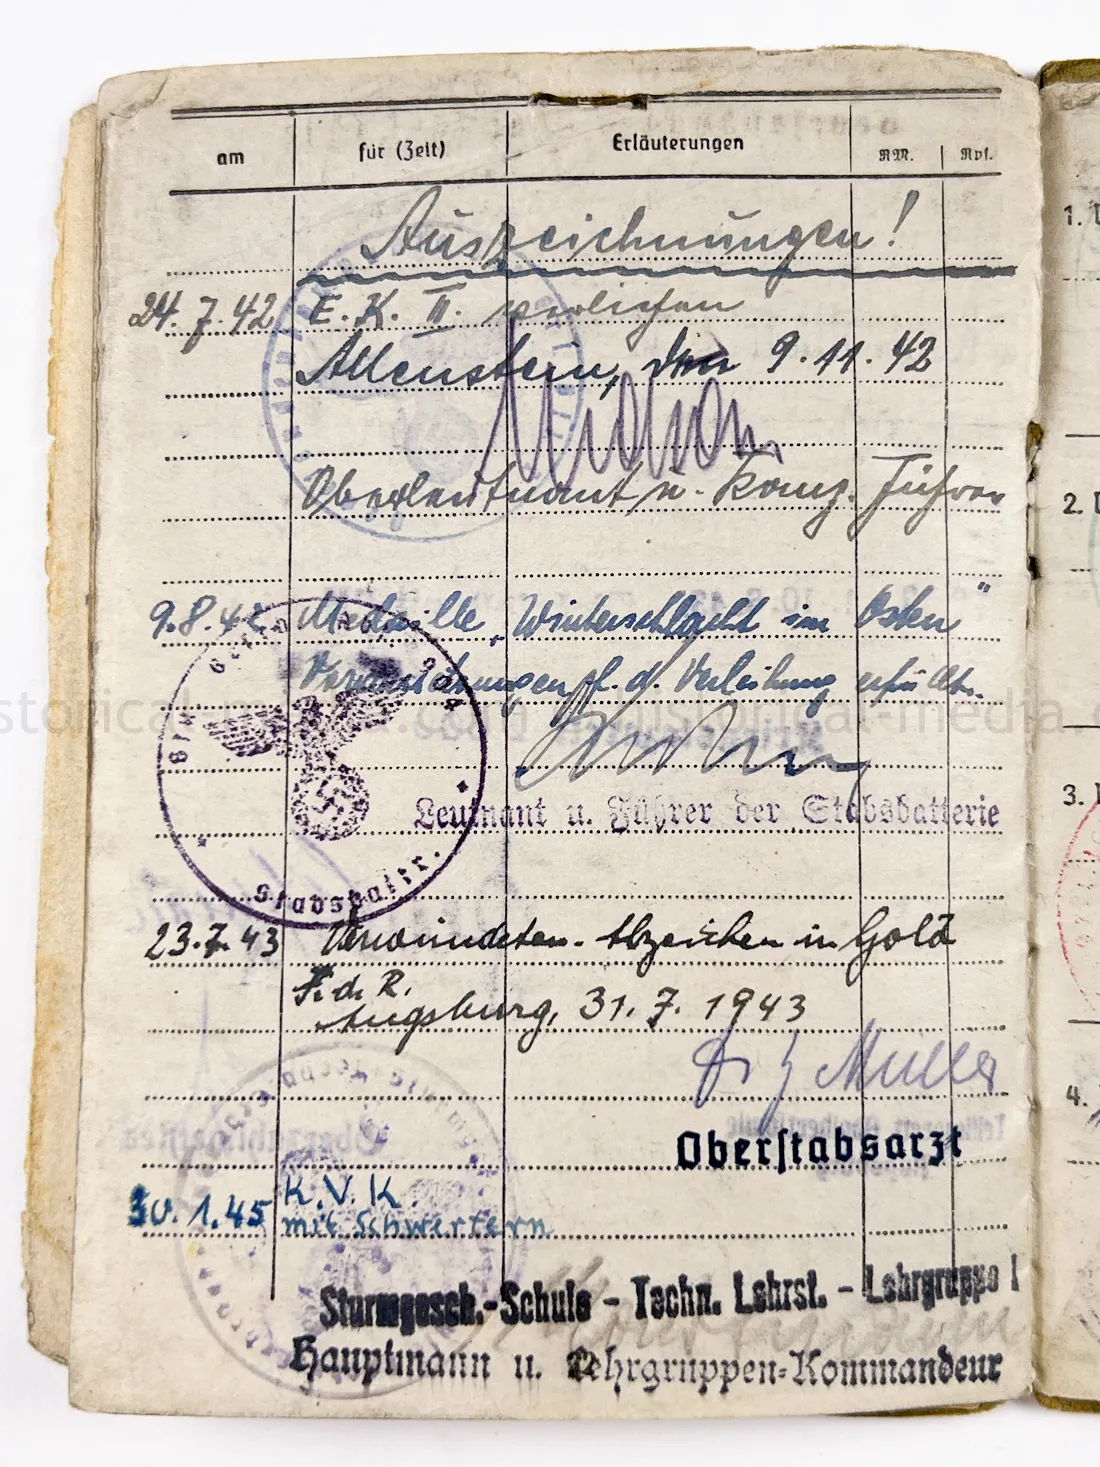 am für (Zeit) Erläuterungen RM. Rpf.
Auszeichnungen!
24.7.42 E. K. II. verliehen
Allenstein, den 9.11.42
Oberleutnant u. Komp. Führer
9.8.42. Medaille „Winterschlacht im Osten"
Voraussetzungen f. d. Verleihung erfüllt.
Leutnant u. Führer der Stabsbatterie
23.7.43 Verwundeten-Abzeichen in Gold
F. d. R.
Augsburg, 31.7.1943
Müller
Oberstabsarzt
30.1.45 K.V.K.
mit Schwertern
Sturmgesch.-Schule - Techn. Lehrst. - Lehrgruppe I
Hauptmann u. Lehrgruppen-Kommandeur
1.
2.
3.
4.
historical-media